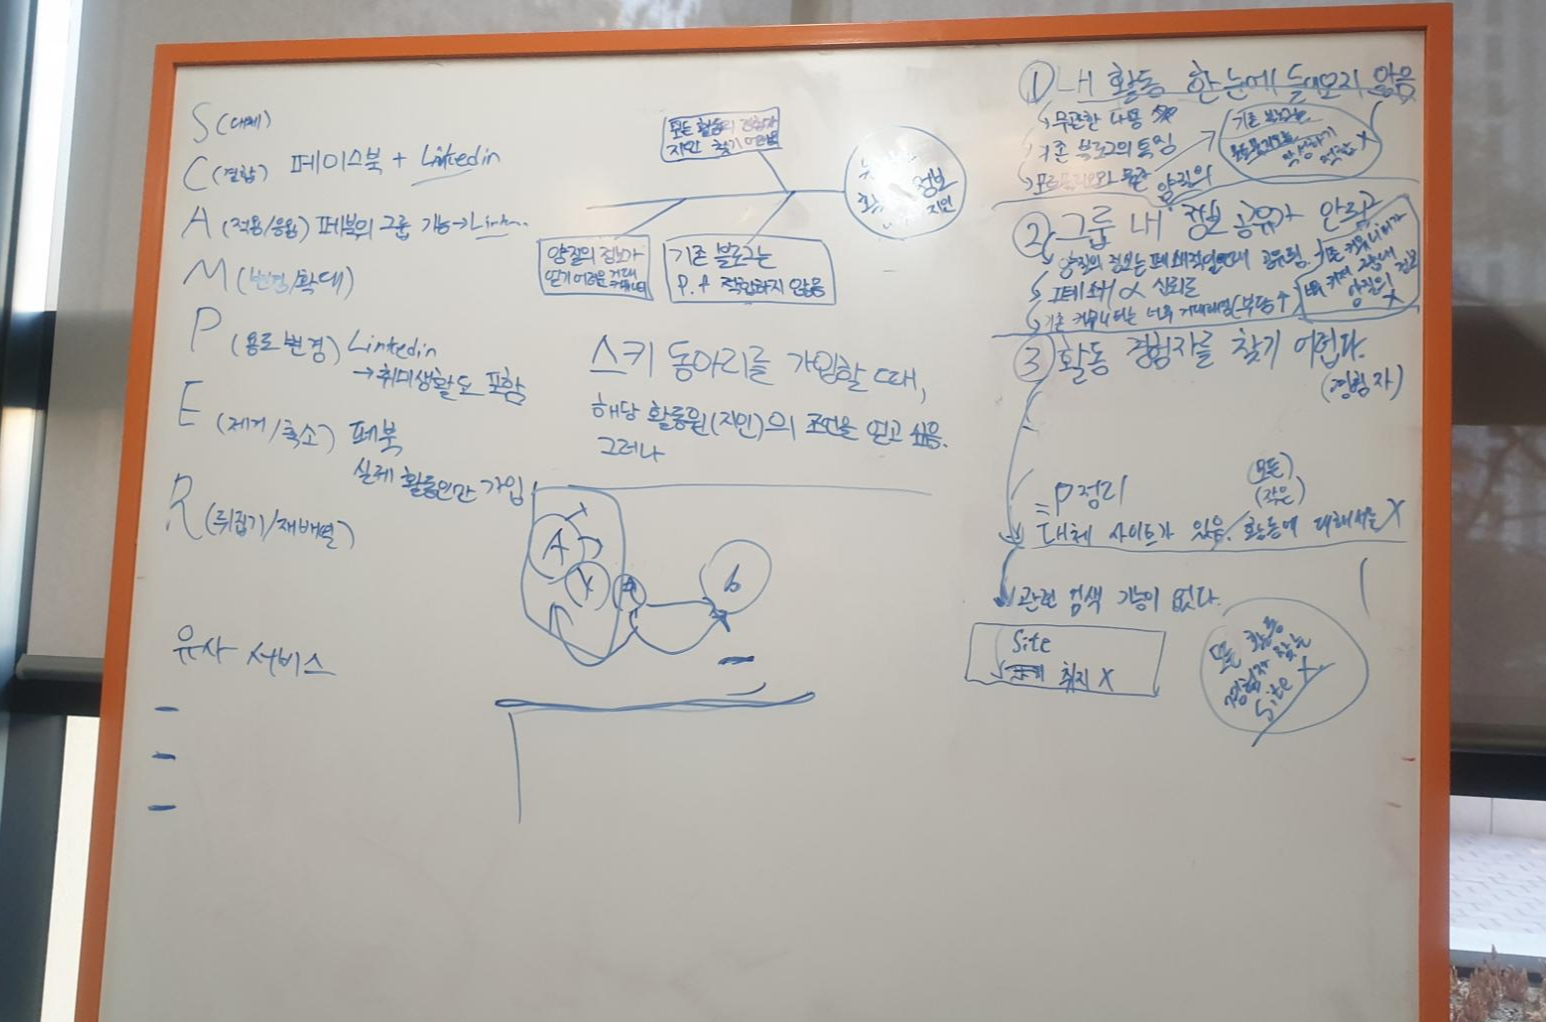 S (대체)
C (결합) 페이스북 + Linkedin
A (적용/응용) 페북의 그룹 기능→Linkn..
M (변경/확대)
P (용도변경) Linkedin
→취미생활도 포함
E (제거/축소) 페북
실제 활동인만 가입
R (뒤집기/재배열)
유사 서비스
모든 활동의 경험과
지인 찾기 어려움
정보
지인
양질의 정보가
얻기 어려운
기존 블로그는
P.f 적합하지 않음
스키 동아리를 가입할 때,
해당 활동원(지인)의 조언을 얻고 싶음.
그러나
A
b
① 내 활동 한 눈에 들어오지 않음
무관한 내용
기존 블로그의 특징
기존 블로그는
포트폴리오를
작성하기
적합 X
양질의
② 그룹 내 정보 공유가 안되고
양질의 정보는 폐쇄적일때 공유됨.
폐쇄 ∝ 신뢰로
기존 커뮤니티는 너무 거대해짐(부담↑)
기존 커뮤니티가
너무 커져 그룹내
양질의 X
③ 활동 경험자를 찾기 어렵다.
(경험자)
= P정리
(모든)
(작은)
대체 사이트가 있음. 활동에 대해서는 X
관련 검색 기능이 없다.
Site
취지 X
모든 활동
경험자 찾는
Site X